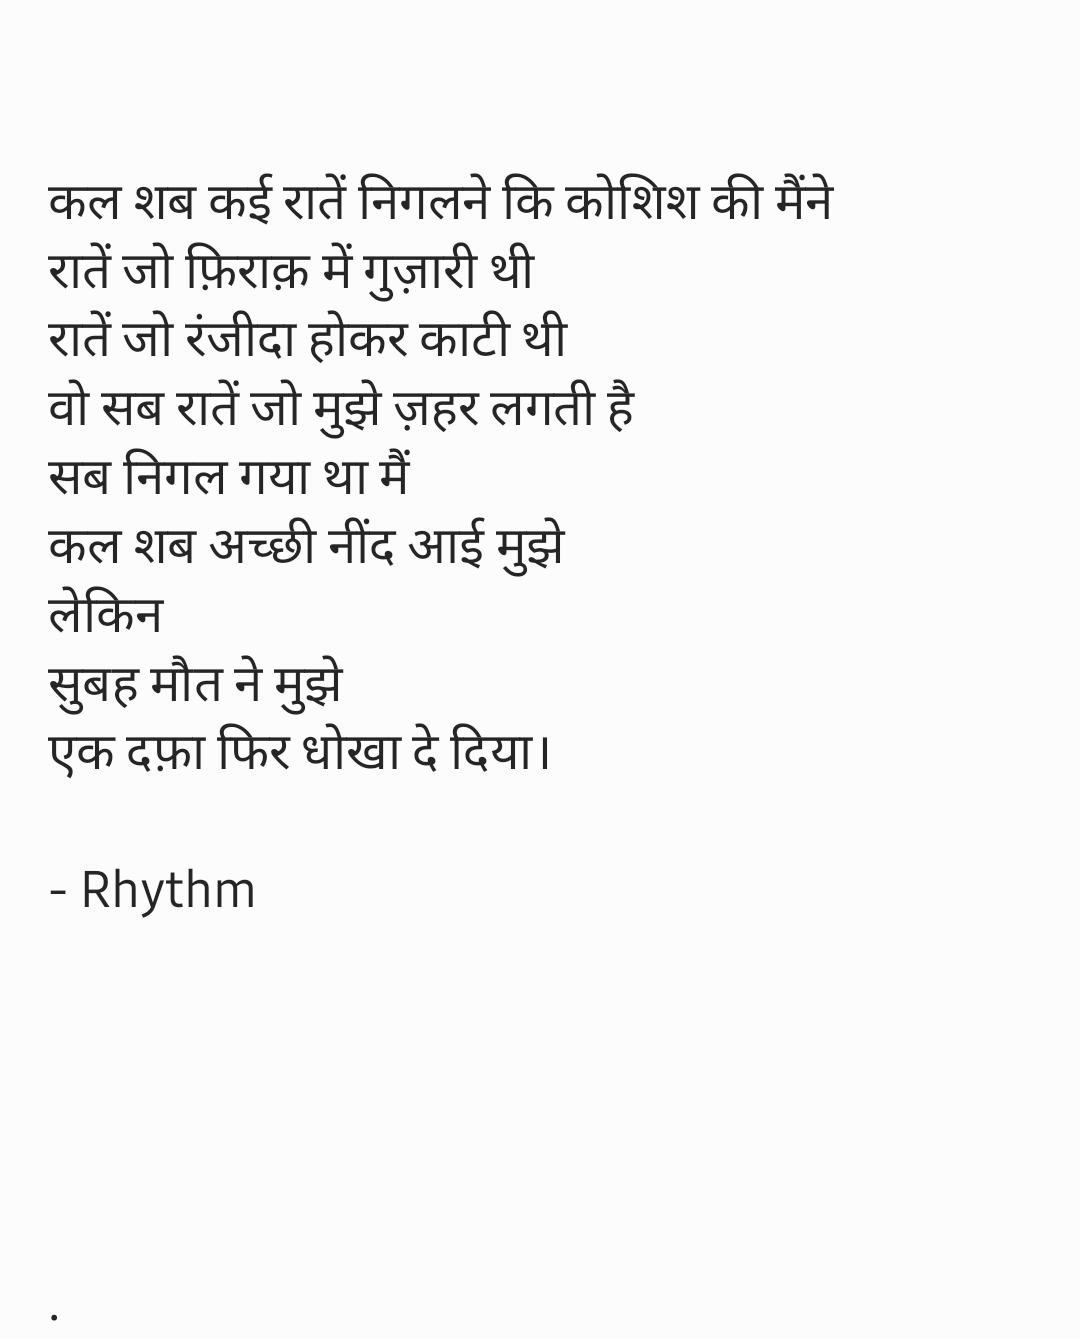 कल शब कई रातें निगलने कि कोशिश की मैंने
रातें जो फ़िराक़ में गुज़ारी थी
रातें जो रंजीदा होकर काटी थी
वो सब रातें जो मुझे ज़हर लगती है
सब निगल गया था मैं
कल शब अच्छी नींद आई मुझे
लेकिन
सुबह मौत ने मुझे
एक दफ़ा फिर धोखा दे दिया।
- Rhythm
.